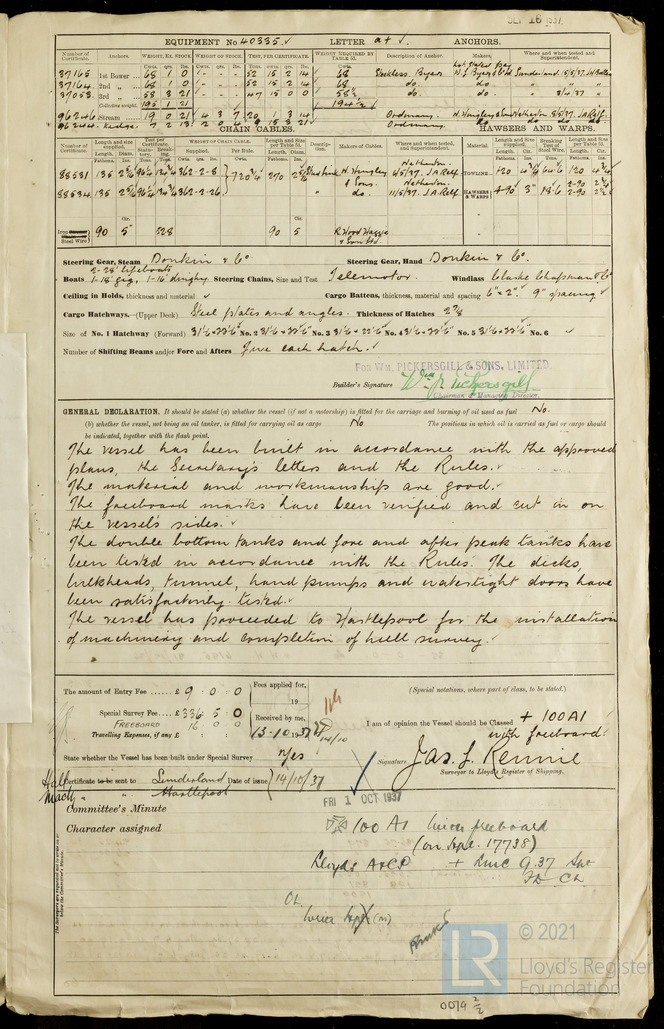 SEP 16 1937
EQUIPMENT No 40335 ✓ LETTER a† ✓ ANCHORS.
Number of Certificate. Anchors. WEIGHT, EX. STOCK WEIGHT OF STOCK. TEST, PER CERTIFICATE. WEIGHT REQUIRED BY TABLE 53. Description of Anchor. Makers. Where and when tested and Superintendent.
Cwts. qrs. lbs. Cwts. qrs. lbs. Tons. cwts. qrs. lbs. Cwts.
37165 1st Bower 68 1 0 52 15 2 14 68 Stockless Byers W. L. Byers & Co Ltd Sunderland
37164 2nd 68 1 0 52 15 2 14 68 do do
37053 3rd 58 3 21 47 15 0 0 58½ do. do. 3/4/37
Collective weight. 195 1 21 194½
96246 Stream 19 0 21 4 3 7 20 1 3 14 Ordinary. N. Hingley & Sons Netherton 8/5/37 J.A. Relf.
96244 Kedge 7 2 13 2 0 4 9 15 3 21 Ordinary
CHAIN CABLES. HAWSERS AND WARPS.
Number of Certificate. Length and size supplied. Test per Certificate. WEIGHT OF CHAIN CABLE. Length and Size per Table 53. Description. Makers of Cables. Where and when tested, and Superintendent. Material Length and Size supplied. Breaking Test of Steel Wire. Length and Size per Table 53.
88531 135 2 5/16 96.4 134.4 362-2-8 720¾ 270 2 5/16 Stud link N. Hingley & Sons. Netherton. 6/5/37. J A Relf TOWLINE 120 4½ 64.6 120 4¼
88534 135 2 5/16 96.4 134.4 362-2-26 do. Netherton. 11/5/37. J A Relf HAWSERS & WARPS 4-90 3" 18.6 2-90 2¾ 2-90 2½
Steel Wire 90 5" 528 90 5 R. Hood Haggie & Son Ltd.
Steering Gear, Steam Donkin & Co Steering Gear, Hand Donkin & Co.
2-28' lifeboats
Boats 1-18' gig, 1-16' dinghy. Steering Chains, Size and Test Telemotor. Windlass Clarke Chapman & Co
Ceiling in Holds, thickness and material ✓ Cargo Battens, thickness, material and spacing 6" × 2". 9" spacing ✓
Cargo Hatchways.—(Upper Deck) Steel plates and angles. Thickness of Hatches 2⅞
Size of No. 1 Hatchway (Forward) No. 2 No. 3 No. 4 No. 5 No. 6 ✓
Number of Shifting Beams and/or Fore and Afters Five each hatch. ✓
FOR WM. PICKERSGILL & SONS, LIMITED.
Builder's Signature Wm J. Pickersgill
Chairman & Managing Director.
GENERAL DECLARATION. It should be stated (a) whether the vessel (if not a motorship) is fitted for the carriage and burning of oil used as fuel No.
(b) whether the vessel, not being an oil tanker, is fitted for carrying oil as cargo No The positions in which oil is carried as fuel or cargo should
be indicated, together with the flash point.
The vessel has been built in accordance with the approved
plans, the Secretary's letters and the Rules. ✓
The material and workmanship are good. ✓
The freeboard marks have been verified and cut in on
the vessel's sides. ✓
The double bottom tanks and fore and after peak tanks have
been tested in accordance with the Rules. The decks,
bulkheads, tunnel, hand pumps and watertight doors have
been satisfactorily tested. ✓
The vessel has proceeded to Hartlepool for the installation
of machinery and completion of hull survey. ✓
The amount of Entry Fee ...... £ 9 : 0 : 0 Fees applied for, 19 (Special notations, where part of class, to be stated.)
Special Survey Fee...... £ 336 : 5 : 0 Received by me, I am of opinion the Vessel should be Classed + 100A1
FREEBOARD 16 0 0 13-10-1937 14/10 with freeboard.
Travelling Expenses, if any £ : :
State whether the Vessel has been built under Special Survey Yes Signature Jas. L. Rennie
Surveyor to Lloyd's Register of Shipping.
Hull Certificate to be sent to Sunderland Date of issue 14/10/37
Mach. " " Hartlepool
FRI 1 OCT 1937
Committee's Minute
Character assigned
✠ 100 A1 with freeboard
(on Supt. 17738)
Lloyds A & CP + LMC 9.37
FD CL
The Surveyors are requested not to write on or below the Committee's Minute.
© 2021
LR
Lloyd's Register
Foundation
0079 2/2